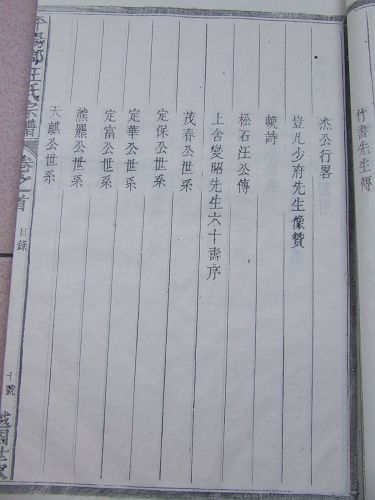 竹書先生傳
杰公行畧
豈凡少府先生像贊
輓詩
松石汪公傳
上舍變堦先生六十壽序
茂春公世系
定保公世系
定華公世系
定富公世系
熊羆公世系
天麒公世系
平陽郡汪氏宗譜
卷之首
目錄
十號
越國世家